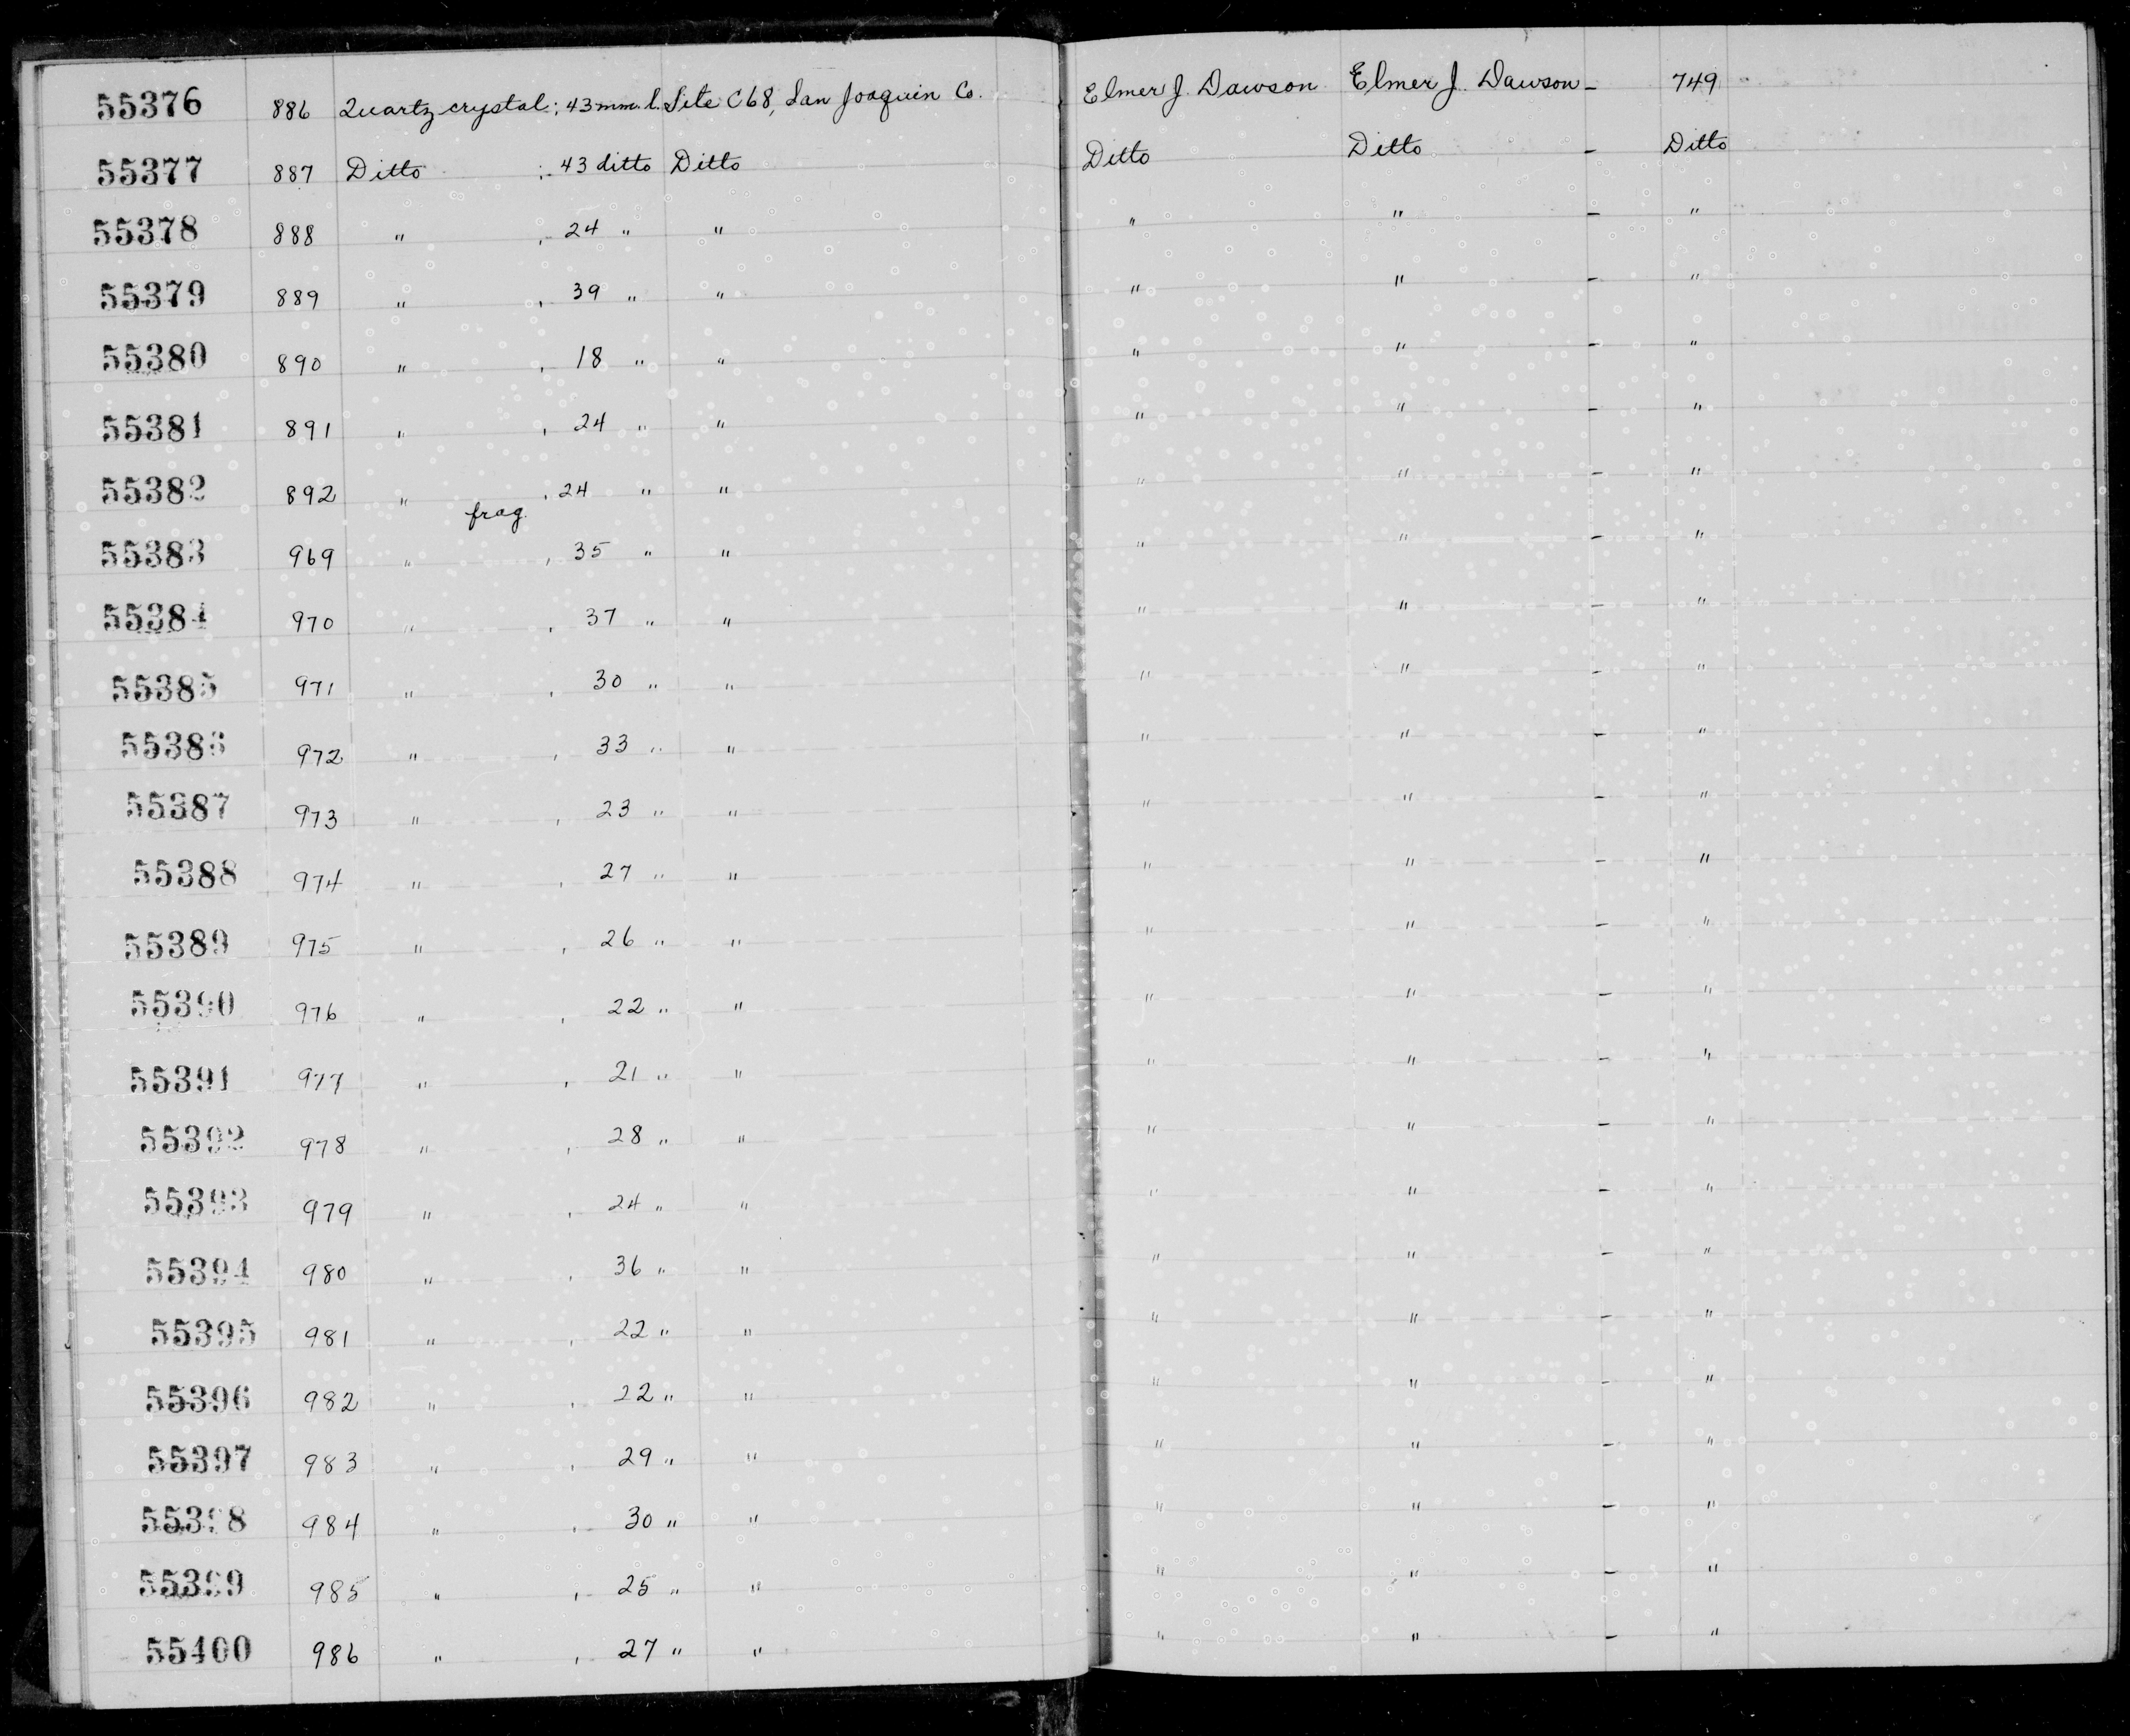 55376 886 Quartz crystal; 43 mm. l. Site C68, San Joaquin Co. Elmer J. Dawson Elmer J. Dawson - 749
55377 887 Ditto ; 43 ditto Ditto Ditto Ditto - Ditto
55378 888 " , 24 " " " " - "
55379 889 " , 39 " " " " - "
55380 890 " , 18 " " " " - "
55381 891 " , 24 " " " " - "
55382 892 " frag. , 24 " " " " - "
55383 969 " , 35 " " " " - "
55384 970 " , 37 " " " " - "
55385 971 " , 30 " " " " - "
55386 972 " , 33 " " " " - "
55387 973 " , 23 " " " " - "
55388 974 " , 27 " " " " - "
55389 975 " , 26 " " " " - "
55390 976 " , 22 " " " " - "
55391 977 " , 21 " " " " - "
55392 978 " , 28 " " " " - "
55393 979 " , 24 " " " " - "
55394 980 " , 36 " " " " - "
55395 981 " , 22 " " " " - "
55396 982 " , 22 " " " " - "
55397 983 " , 29 " " " " - "
55398 984 " , 30 " " " " - "
55399 985 " , 25 " " " " - "
55400 986 " , 27 " " " " - "